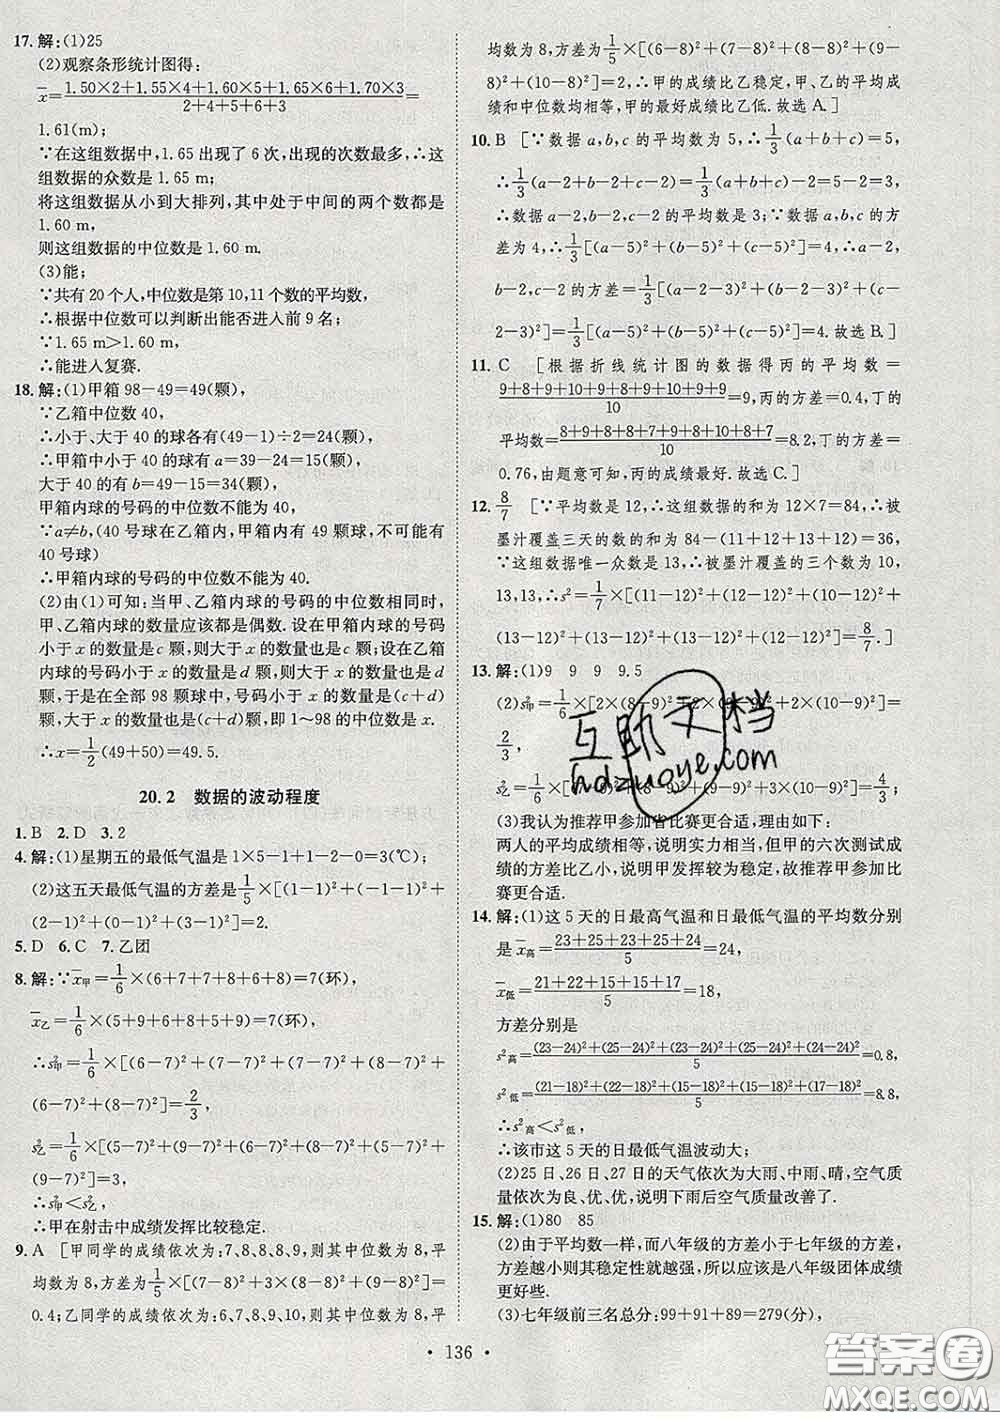 17. 解:(1)25
(2)观察条形统计图得:
x̄=(1.50×2+1.55×4+1.60×5+1.65×6+1.70×3)/(2+4+5+6+3)=
1.61(m);
∵在这组数据中,1.65 出现了 6 次,出现的次数最多,∴这
组数据的众数是 1.65 m;
将这组数据从小到大排列,其中处于中间的两个数都是
1.60 m,
则这组数据的中位数是 1.60 m.
(3)能;
∵共有 20 个人,中位数是第 10,11 个数的平均数,
∴根据中位数可以判断出能否进入前 9 名;
∵1.65 m>1.60 m,
∴能进入复赛.
18. 解:(1)甲箱 98-49=49(颗),
∵乙箱中位数 40,
∴小于、大于 40 的球各有(49-1)÷2=24(颗),
∴甲箱中小于 40 的球有 a=39-24=15(颗),
大于 40 的有 b=49-15=34(颗),
甲箱内球的号码的中位数不能为 40.
∵a≠b,(40 号球在乙箱内,甲箱内有 49 颗球,不可能有
40 号球)
∴甲箱内球的号码的中位数不能为 40.
(2)由(1)可知:当甲、乙箱内球的号码的中位数相同时,
甲、乙箱内球的数量应该都是偶数. 设在甲箱内球的号码
小于 x 的数量是 c 颗,则大于 x 的数量也是 c 颗;设在乙箱
内球的号码小于 x 的数量是 d 颗,则大于 x 的数量也是 d
颗;于是在全部 98 颗球中,号码小于 x 的数量是(c+d)
颗,大于 x 的数量也是(c+d)颗,即 1~98 的中位数是 x.
∴x=1/2(49+50)=49.5.
20.2 数据的波动程度
1. B 2. D 3. 2
4. 解:(1)星期五的最低气温是 1×5-1+1-2-0=3(℃);
(2)这五天最低气温的方差是1/5×[(1-1)²+(-1-1)²+
(2-1)²+(0-1)²+(3-1)²]=2.
5. D 6. C 7. 乙团
8. 解:∵x̄甲=1/6×(6+7+7+8+6+8)=7(环),
x̄乙=1/6×(5+9+6+8+5+9)=7(环),
∴s²甲=1/6×[(6-7)²+(7-7)²+(7-7)²+(8-7)²
+(6-7)²+(8-7)²]=2/3,
s²乙=1/6×[(5-7)²+(9-7)²+(6-7)²+(8-7)²+(5-7)²+
(9-7)²]=3,
∴s²甲<s²乙,
∴甲在射击中成绩发挥比较稳定.
9. A [甲同学的成绩依次为:7、8、8、8、9,则其中位数为 8,平
均数为 8,方差为1/5×[(7-8)²+3×(8-8)²+(9-8)²]=
0.4;乙同学的成绩依次为:6、7、8、9、10,则其中位数为 8,平
均数为 8,方差为1/5×[(6-8)²+(7-8)²+(8-8)²+(9-
8)²+(10-8)²]=2,∴甲的成绩比乙稳定,甲、乙的平均成
绩和中位数均相等,甲的最好成绩比乙低. 故选 A.]
10. B [∵数据 a,b,c 的平均数为 5,∴1/3(a+b+c)=5,
∴1/3(a-2+b-2+c-2)=1/3(a+b+c)-2=5-2=3,
∴数据 a-2,b-2,c-2 的平均数是 3;∵数据 a,b,c 的方
差为 4,∴1/3[(a-5)²+(b-5)²+(c-5)²]=4,∴a-2,
b-2,c-2 的方差=1/3[(a-2-3)²+(b-2-3)²+(c
-2-3)²]=1/3[(a-5)²+(b-5)²+(c-5)²]=4. 故选 B.]
11. C [根据折线统计图的数据得丙的平均数=
(9+8+9+10+9+8+9+10+9+9)/10=9,丙的方差=0.4,丁的
平均数=(8+9+9+8+8+9+8+10+8+7)/10... =8.2,丁的方差=
0.76,由题意可知,丙的成绩最好. 故选 C.]
12. 8/7 [∵平均数是 12,∴这组数据的和=12×7=84,∴被
墨汁覆盖三天的数的和为 84-(11+12+13+12)=36,
∵这组数据唯一众数是 13,∴被墨汁覆盖的三个数为 10,
13,13,∴s²=1/7×[(11-12)²+(12-12)²+(10-12)²+
(13-12)²+(13-12)²+(13-12)²+(12-12)²]=8/7.]
13. 解:(1)9 9 9 9.5
(2)s²甲=1/6×[2×(8-9)²+2×(9-9)²+2×(10-9)²]=
2/3,
s²乙=1/6×[ -9)²+(9-9)²+(8-9)²+(6-9)²+3×(10-9)²]=
(3)我认为推荐甲参加省比赛更合适,理由如下:
两人的平均成绩相等,说明实力相当,但甲的六次测试成
绩的方差比乙小,说明甲发挥较为稳定,故推荐甲参加比
赛更合适.
14. 解:(1)这 5 天的日最高气温和日最低气温的平均数分别
是x̄高=(23+25+23+25+24)/5=24,
x̄低=(21+22+15+15+17)/5=18,
方差分别是
s²高=((23-24)²+(25-24)²+(23-24)²+(25-24)²+(24-24)²)/5=0.8,
s²低=((21-18)²+(22-18)²+(15-18)²+(15-18)²+(17-18)²)/5=8.8,
∴s²高<s²低,
∴该市这 5 天的日最低气温波动大;
(2)25 日、26 日、27 日的天气依次为大雨、中雨、晴,空气质
量依次为良、优、优,说明下雨后空气质量改善了.
15. 解:(1)80 85
(2)由于平均数一样,而八年级的方差小于七年级的方差,
方差越小则其稳定性就越强,所以应该是八年级团体成绩
更好些.
(3)七年级前三名总分:99+91+89=279(分),
• 136 •
互助文档
hdzuoye.com
答案圈
MXQE.COM